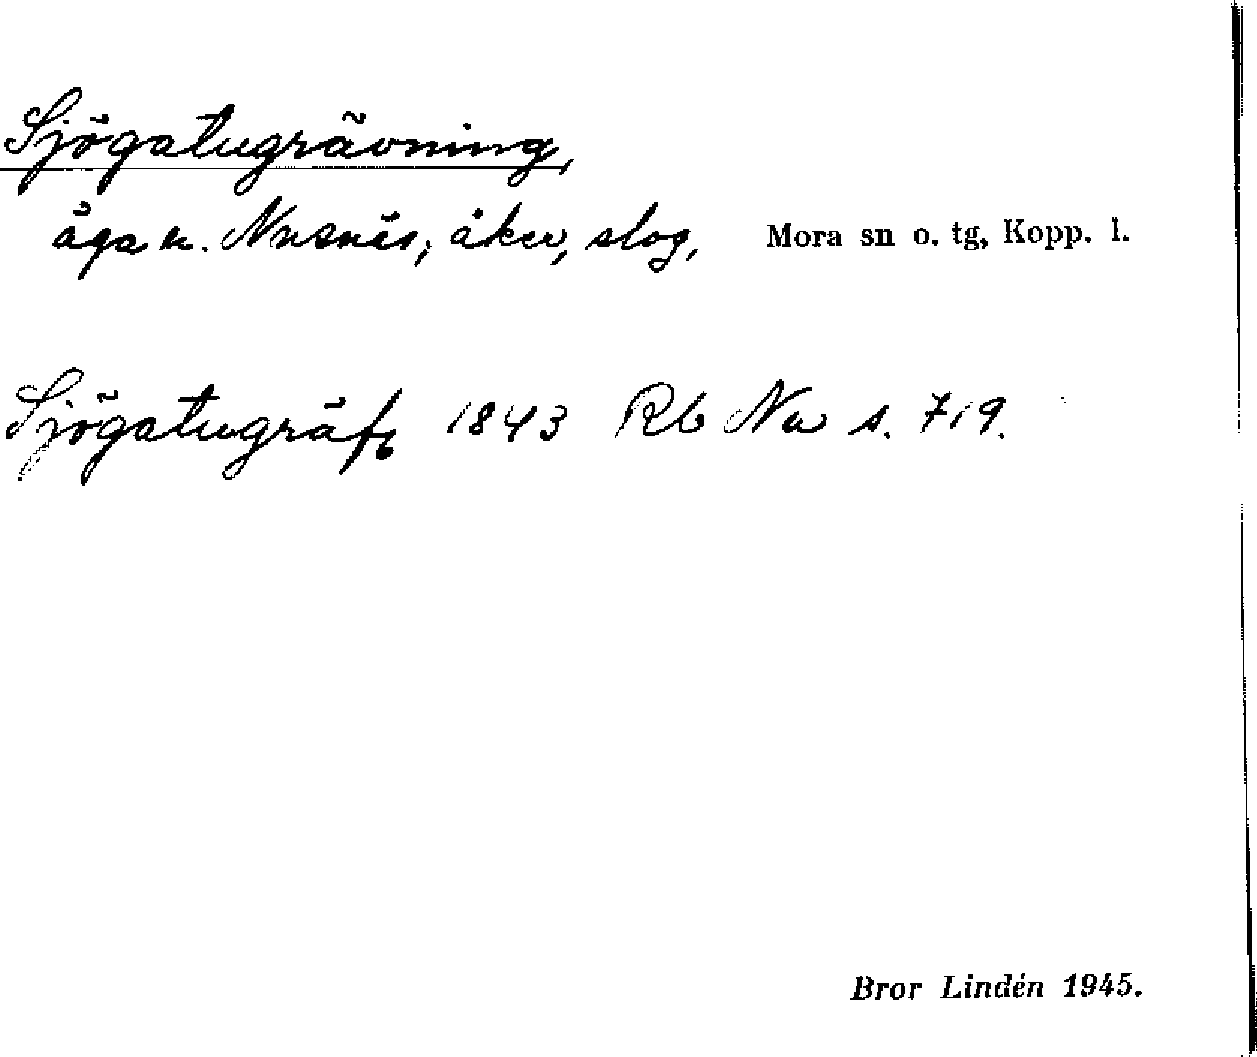 Sjögatugrävning,
äga n. Nusnäs, åker, slog, Mora sn o. tg, Kopp. l.
Sjögatugräfg 1843 Rb Nu s. 719.
Bror Lindén 1945.